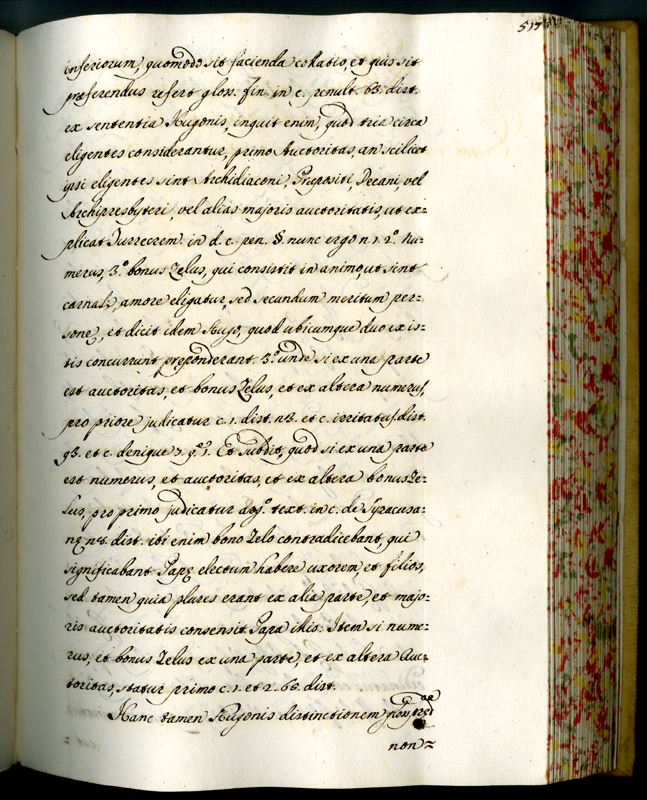 517
inferiorum, quomodo sit facienda collatio, et quis sit
præferendus refert gloss. fin. in c. penult. 63. dist.
ex sententia Hugonis, inquit enim, quod tria circa
eligentes considerantur, primo Auctoritas, an scilicet
ipsi eligentes sint Archidiaconi, Prepositi, Decani, vel
Archipresbyteri, vel alias majoris auctoritatis, ut ex:
plicat Turrecrem. in d. c. pen. §. nunc ergo n. 1. 2.º Nu:
merus, 3.º bonus Zelus, qui consistit in animo, ut sint
carnali, amore eligatur, sed secundum meritum per:
sonę, et dicit idem Hugo, quod ubicumque duo ex is:
tis concurrunt preponderant 3.º unde si ex una parte
est auctoritas, et bonus Zelus, et ex altera numerus,
pro priore judicatur c. 1. dist. et c. irritatus, dist.
93. et c. denique 7. q. 1. Et subdit, quod si ex una parte
est numerus, et auctoritas, et ex altera bonus Ze:
lus, pro primo judicatur arg.º text. in c. de Syracusa:
nę dist. ibi enim bono Zelo contradicebant, qui
significabant Papę electum habere uxorem, et filios,
sed tamen quia plures erant ex alia parte, et majo:
ris auctoritatis consensit Papa illis. Item si nume:
rus, et bonus Zelus ex una parte, et ex altera Auc:
toritas, statur primo c. 1. et 2. 65. dist.
Hanc tamen Hugonis distinctionem gloss.
non